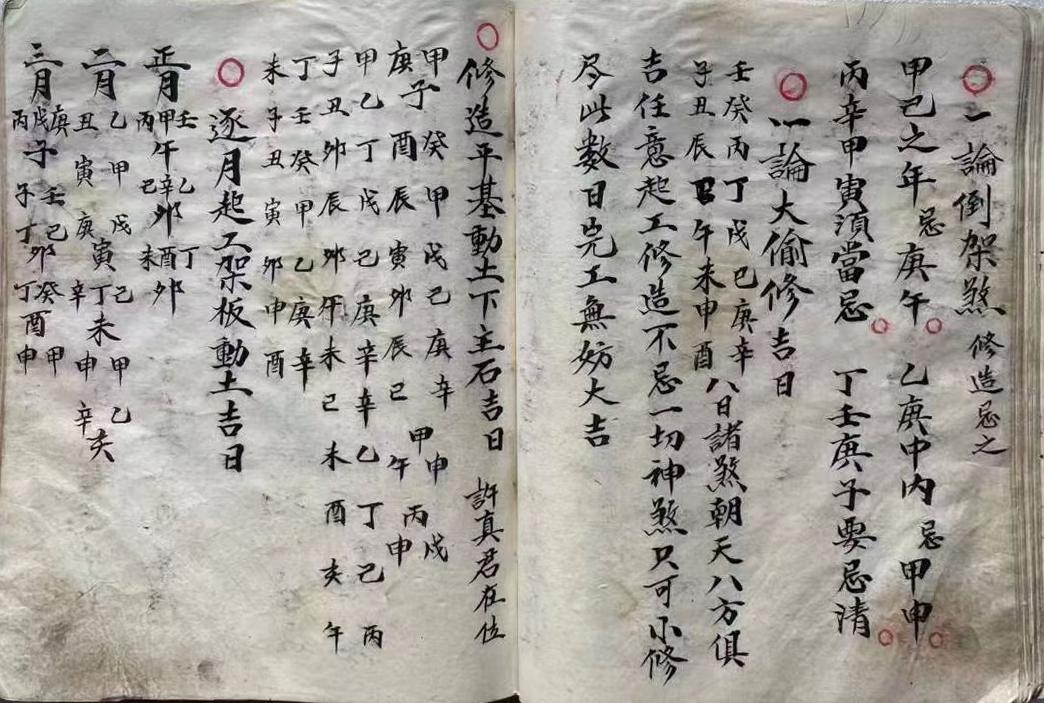 一論倒架煞 修造忌之
甲己之年忌庚午 乙庚中内忌甲申
丙辛甲寅須當忌 丁壬庚子要忌清
一論大偷修吉日
壬子 癸丑 丙辰 丁巳 戊午 己未 庚申 辛酉 八日諸煞朝天八方俱
吉任意起工修造不忌一切神煞只可小修
尽此數日完工無妨大吉
修造平基動土下主石吉日 許真君在位
甲子 癸酉 甲辰 戊寅 己卯 庚辰 辛巳 甲午 甲申 丙申 戊
甲子 乙丑 丁卯 戊辰 己卯 庚午 辛未 辛巳 乙未 丁酉 己亥 丙午
丁未 壬子 癸丑 甲寅 乙卯 庚申 辛酉
逐月起工架板動土吉日
正月 壬甲丙午 乙辛己卯 丁酉未卯
二月 乙丑 甲寅 戊寅庚 己丁辛未 甲申 乙辛亥
三月 庚戊丙子 壬子 己卯丁 癸丁酉 甲申